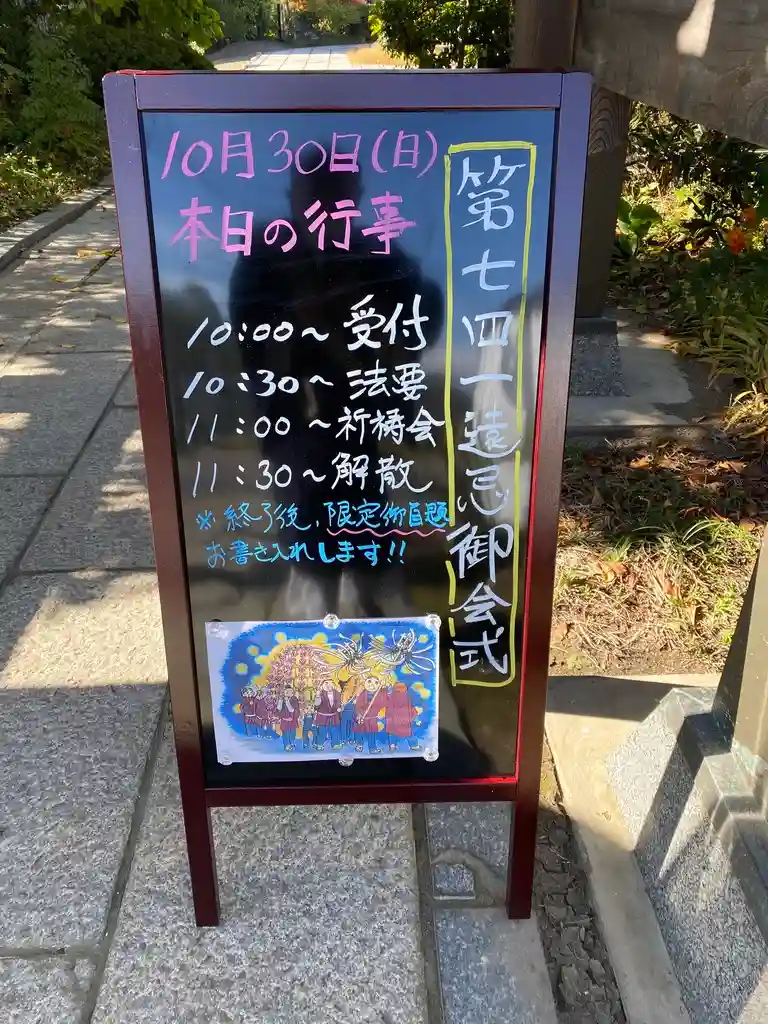 10月30日(日)
本日の行事
第七四一遠忌御会式
10:00~受付
10:30~法要
11:00~祈祷会
11:30~解散
※終了後、限定御首題
お書き入れします!!